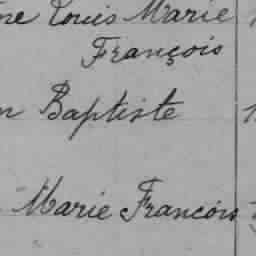 ne Louis Marie
François
n Baptiste
Marie Francois